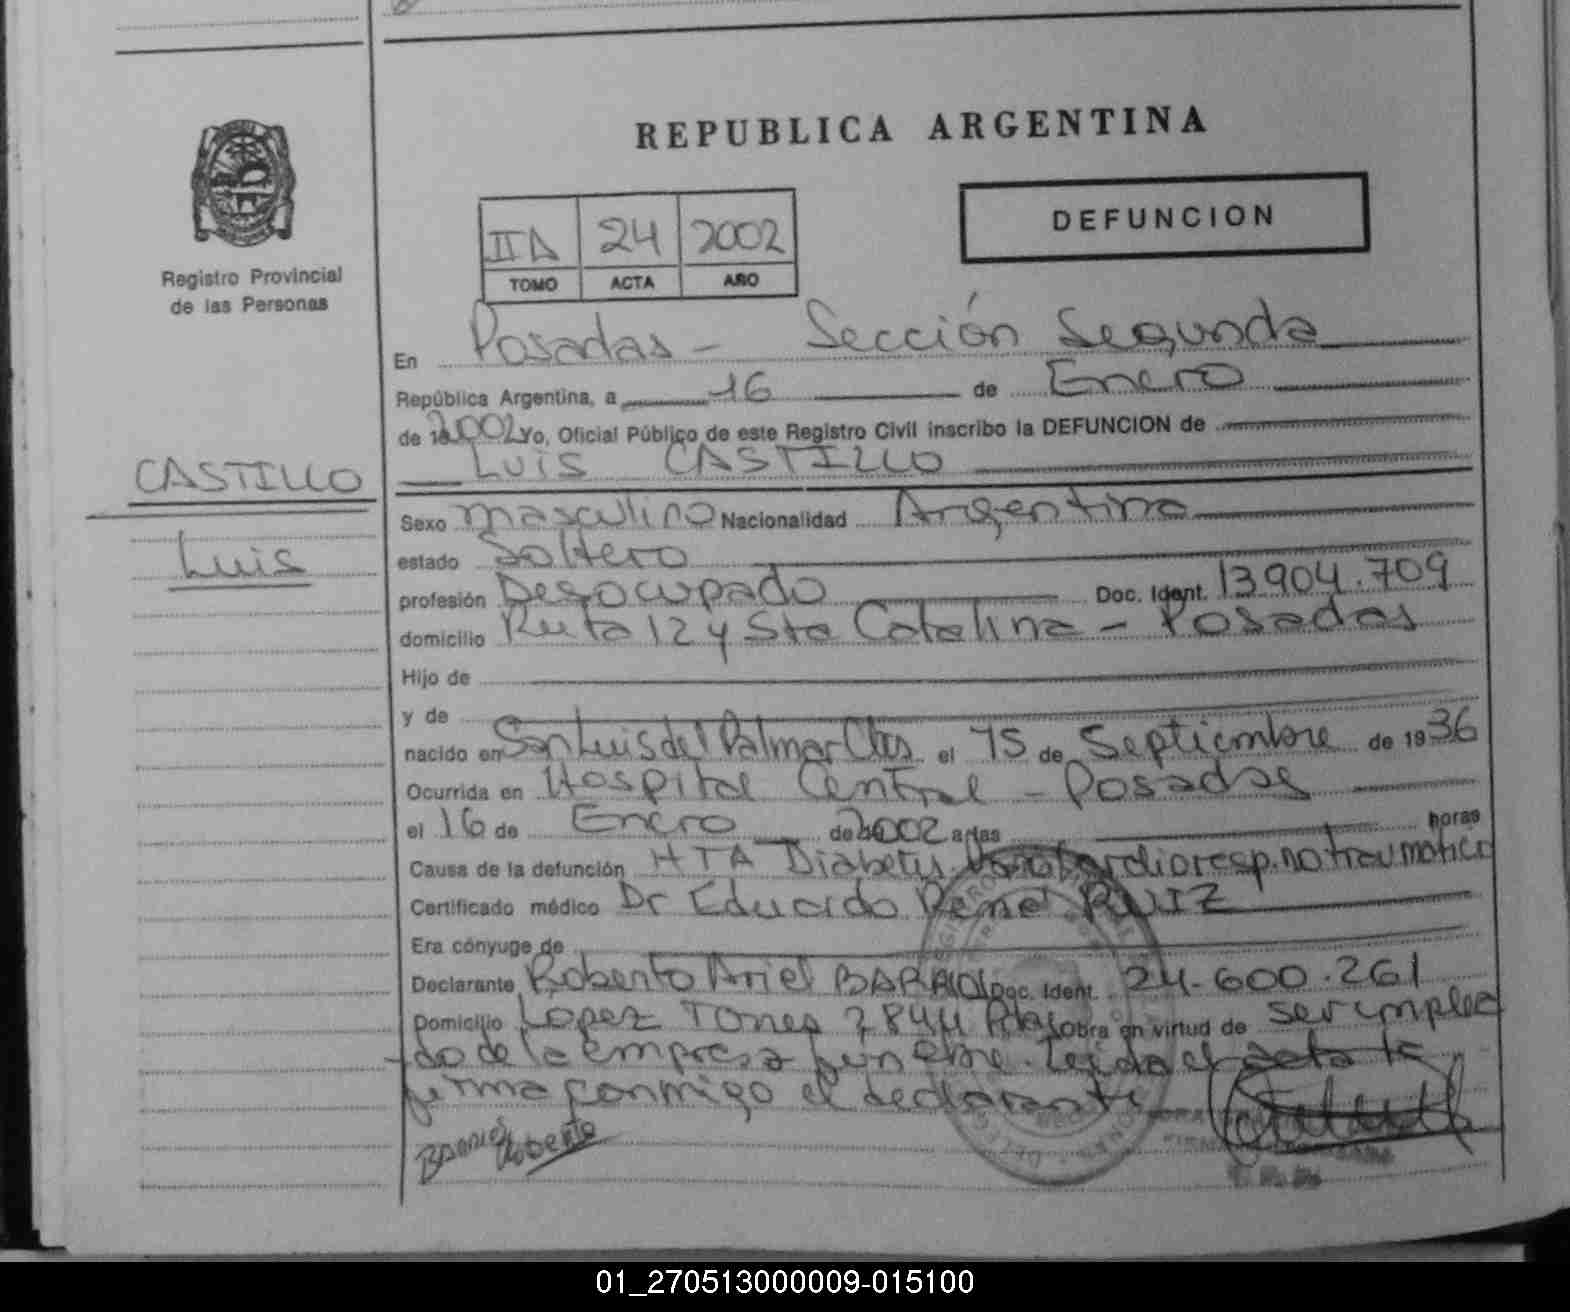 REPUBLICA ARGENTINA
DEFUNCION
Registro Provincial
de las Personas
IIA 24 2002
TOMO ACTA AÑO
En Posadas - Sección Segunda
República Argentina, a 16 de Enero
de 2002 Yo, Oficial Público de este Registro Civil inscribo la DEFUNCION de
Luis CASTILLO
CASTILLO
Luis
Sexo masculino Nacionalidad Argentina
estado Soltero
profesión Desocupado Doc. Ident. 13.904.709
domicilio Ruta 12 y Sta Catalina - Posadas
Hijo de
y de
nacido en San Luis del Palmar Ctes el 15 de Septiembre de 1936
Ocurrida en Hospital Central - Posadas
el 16 de Enero de 2002 a las horas
Causa de la defunción HTA Diabetes Paro Cardioresp. no traumatico
Certificado médico Dr Eduardo Rene RUIZ
Era cónyuge de
Declarante Roberto Ariel BARRIOS Doc. Ident. 24.600.261
Domicilio Lopez Torres 2844 Pdas Obra en virtud de ser emplea
do de la empresa funebre. Leida el acta la
firma conmigo el declarante
Barrios Roberto
01_270513000009-015100